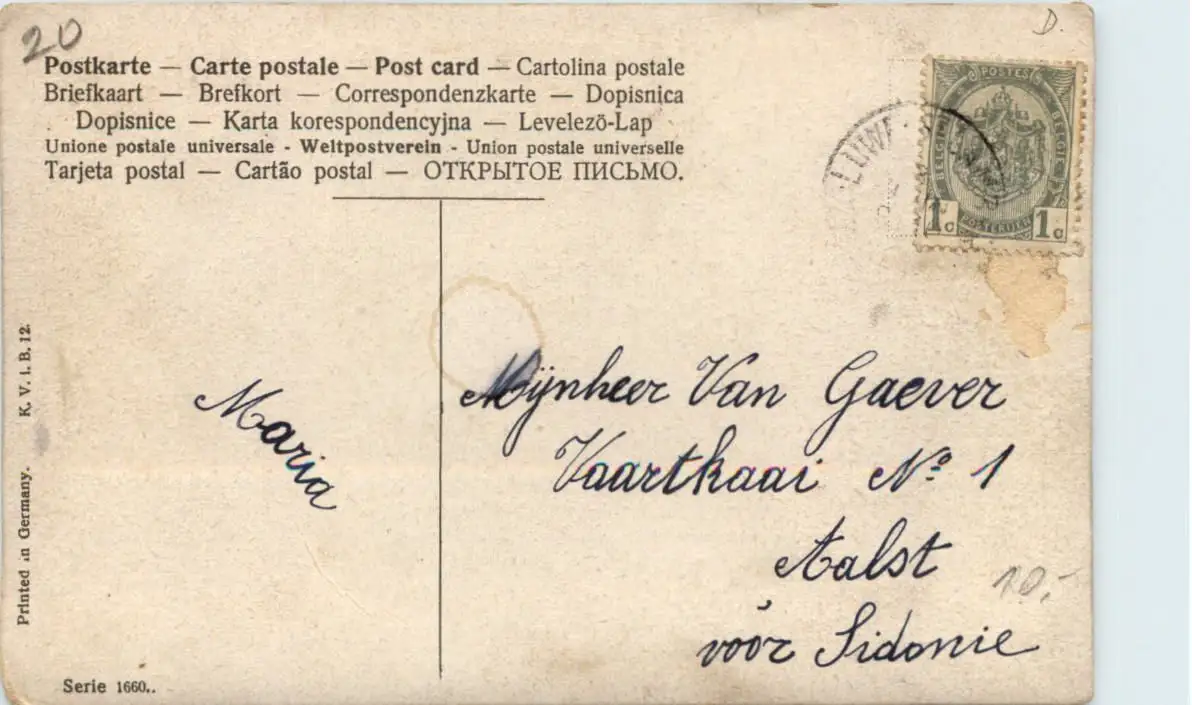 20
D.
Postkarte — Carte postale — Post card — Cartolina postale
Briefkaart — Brefkort — Correspondenzkarte — Dopisnica
Dopisnice — Karta korespondencyjna — Levelező-Lap
Unione postale universale - Weltpostverein - Union postale universelle
Tarjeta postal — Cartão postal — ОТКРЫТОЕ ПИСЬМО.
POSTES
BELGIQUE
BELGIE
POSTERIJEN
1c 1c
Maria
Mijnheer Van Gaever
Vaartkaai No. 1
Aalst
vóór Sidonie
10.-
Printed in Germany. K. V. i. B. 12.
Serie 1660..